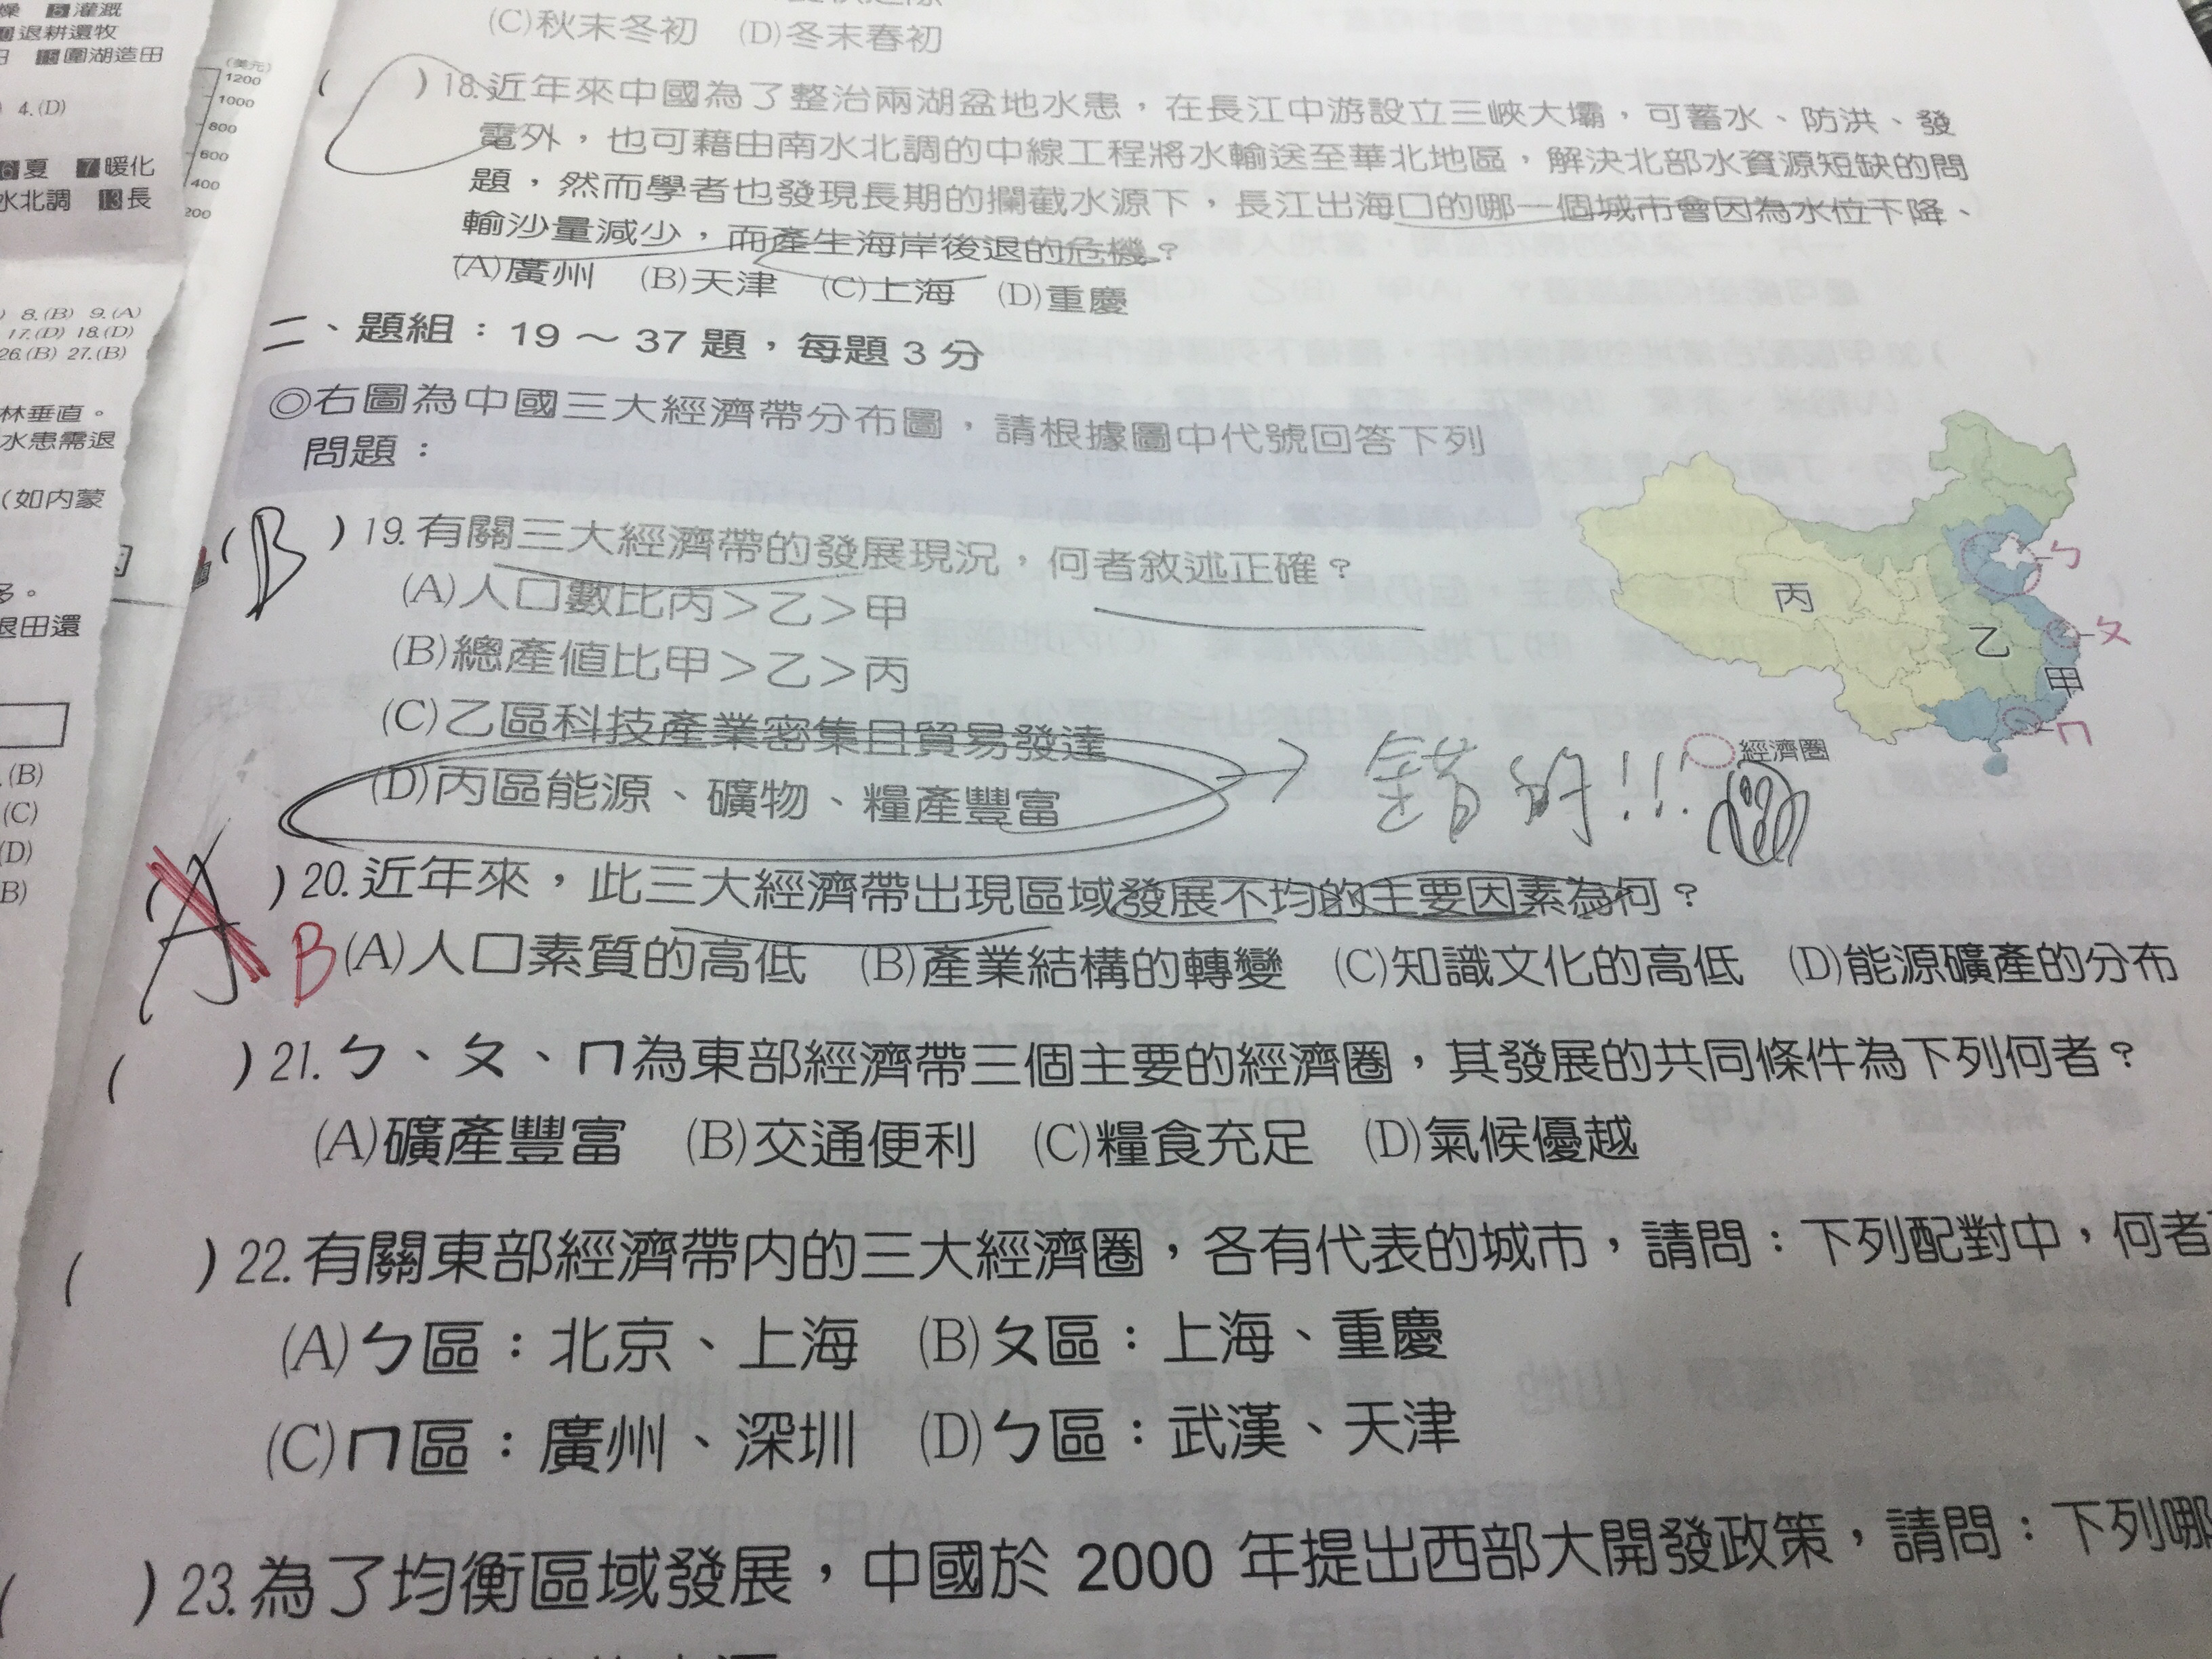 燥 5灌溉
退耕還牧
圍湖造田
4.(D)
6夏 7暖化
水北調 13長
8.(B) 9.(A)
17.(D) 18.(D)
26.(B) 27.(B)
林垂直。
水患需退
(如內蒙
多。
退田還
(B)
(C)
(D)
B)
(美元)
1200
1000
800
600
400
200
(C)秋末冬初 (D)冬末春初
( )18.近年來中國為了整治兩湖盆地水患,在長江中游設立三峽大壩,可蓄水、防洪、發
電外,也可藉由南水北調的中線工程將水輸送至華北地區,解決北部水資源短缺的問
題,然而學者也發現長期的攔截水源下,長江出海口的哪一個城市會因為水位下降、
輸沙量減少,而產生海岸後退的危機?
(A)廣州 (B)天津 (C)上海 (D)重慶
二、題組:19～37題,每題3分
◎右圖為中國三大經濟帶分布圖,請根據圖中代號回答下列
問題:
(B)19.有關三大經濟帶的發展現況,何者敘述正確?
(A)人口數比丙>乙>甲
(B)總產值比甲>乙>丙
(C)乙區科技產業密集且貿易發達
(D)丙區能源、礦物、糧產豐富 → 錯的!!!
丙
乙
甲
ㄅ
ㄆ
ㄇ
經濟圈
(A)20.近年來,此三大經濟帶出現區域發展不均的主要因素為何?
B (A)人口素質的高低 (B)產業結構的轉變 (C)知識文化的高低 (D)能源礦產的分布
( )21.ㄅ、ㄆ、ㄇ為東部經濟帶三個主要的經濟圈,其發展的共同條件為下列何者?
(A)礦產豐富 (B)交通便利 (C)糧食充足 (D)氣候優越
( )22.有關東部經濟帶內的三大經濟圈,各有代表的城市,請問:下列配對中,何者
(A)ㄅ區:北京、上海 (B)ㄆ區:上海、重慶
(C)ㄇ區:廣州、深圳 (D)ㄅ區:武漢、天津
( )23.為了均衡區域發展,中國於 2000 年提出西部大開發政策,請問:下列哪